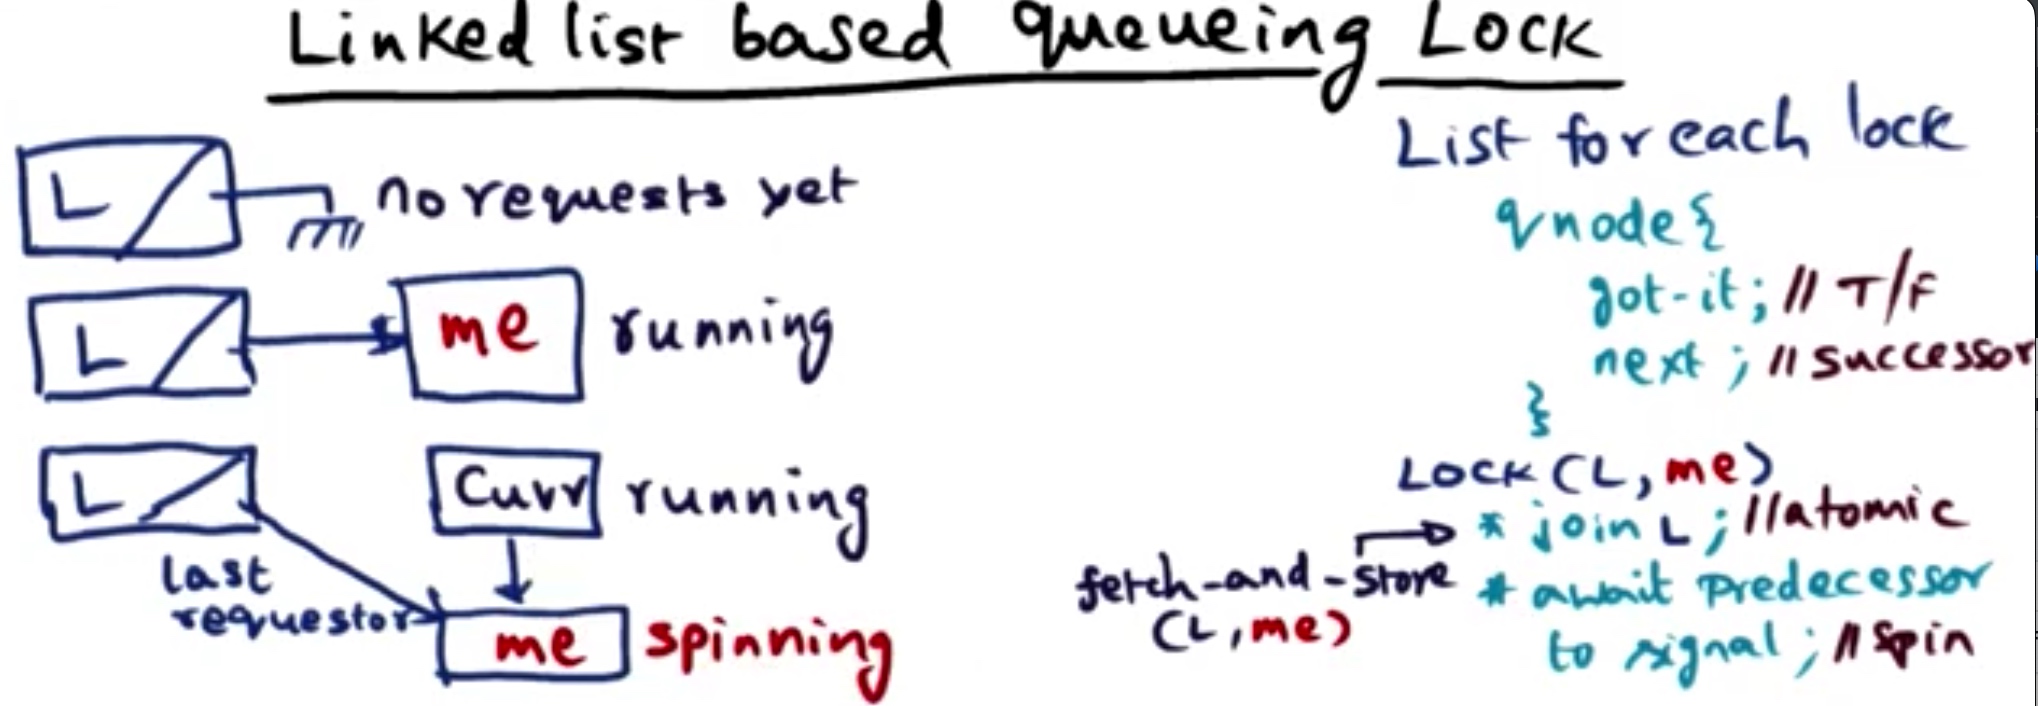 Linked list based queueing Lock
L
no requests yet
L
me
running
L
Curr
running
last
requestor
me
spinning
List for each lock
qnode {
got-it; // T/F
next; // successor
}
LOCK (L, me)
* join L; // atomic
fetch-and-store
(L, me)
* await predecessor
to signal; // spin